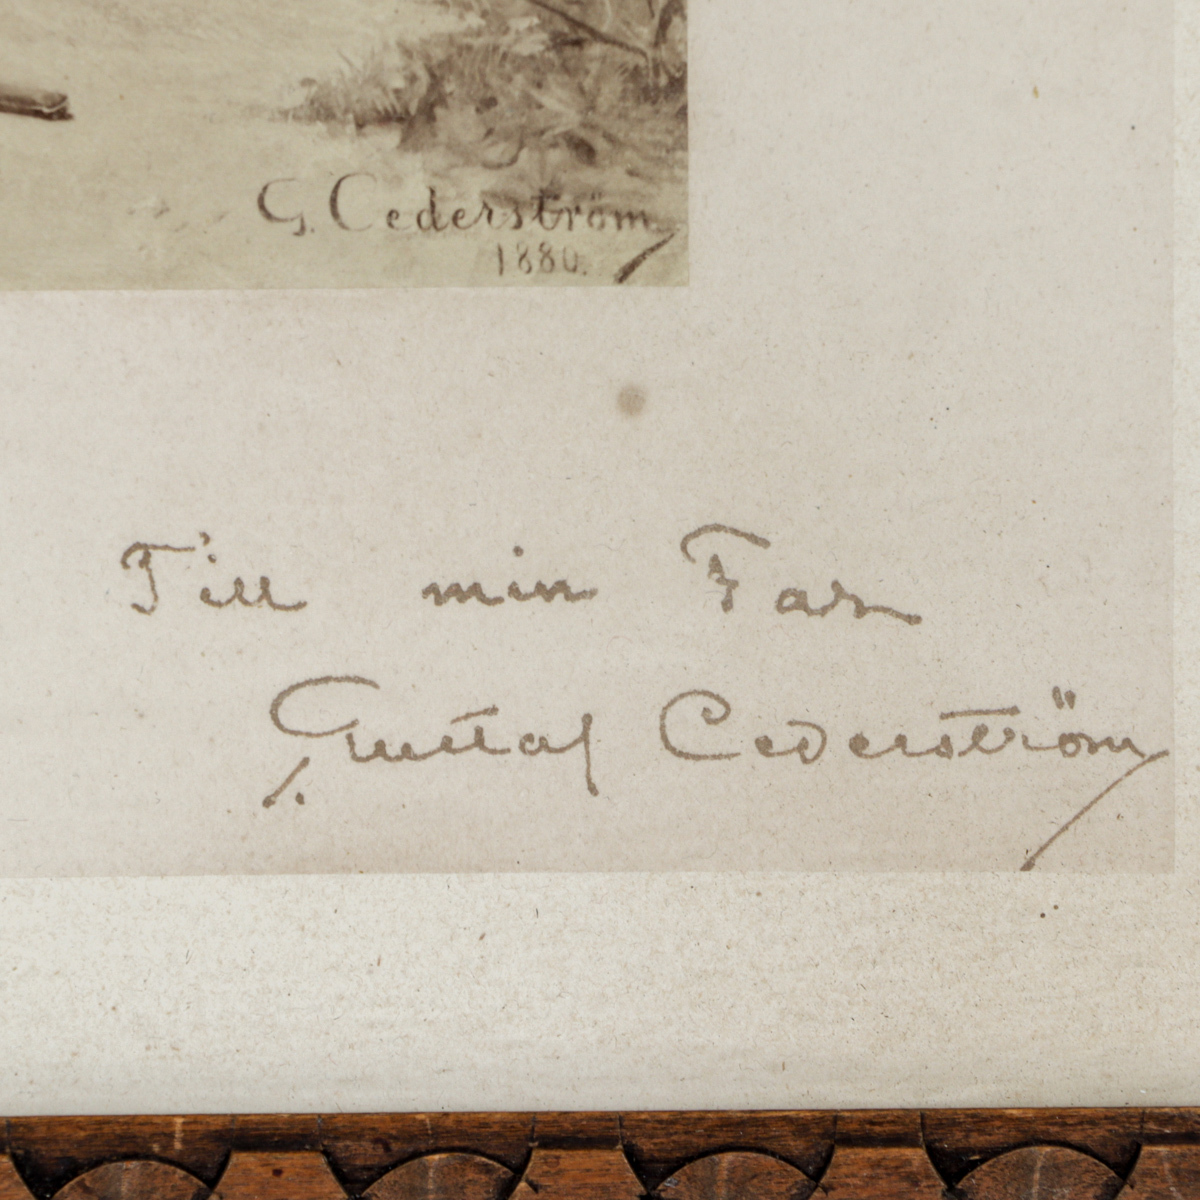 G. Cederström
1880.
Till min Far
Gustaf Cederström